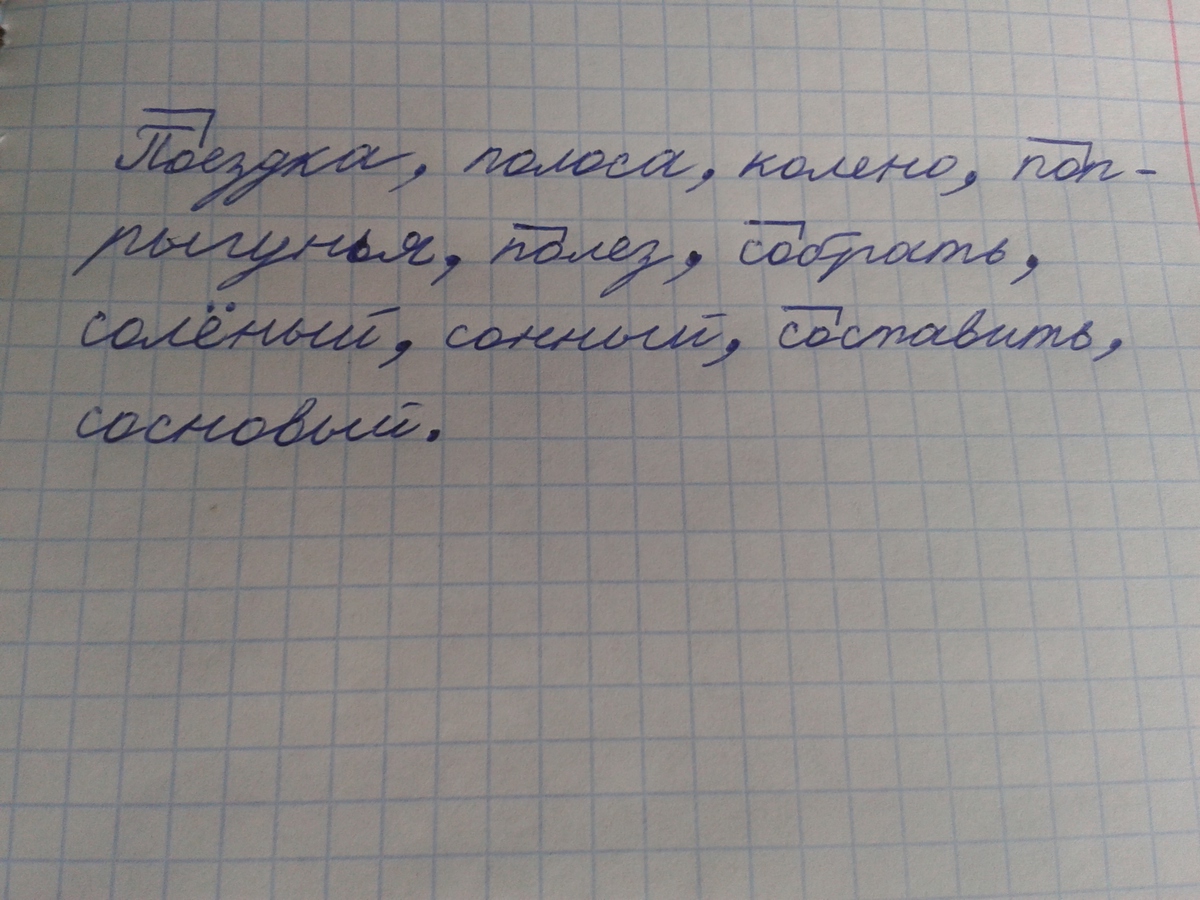 Поездка, полоса, колено, поп-
рыгунья, полез, собрать,
солёный, сонный, составить,
сосновый.